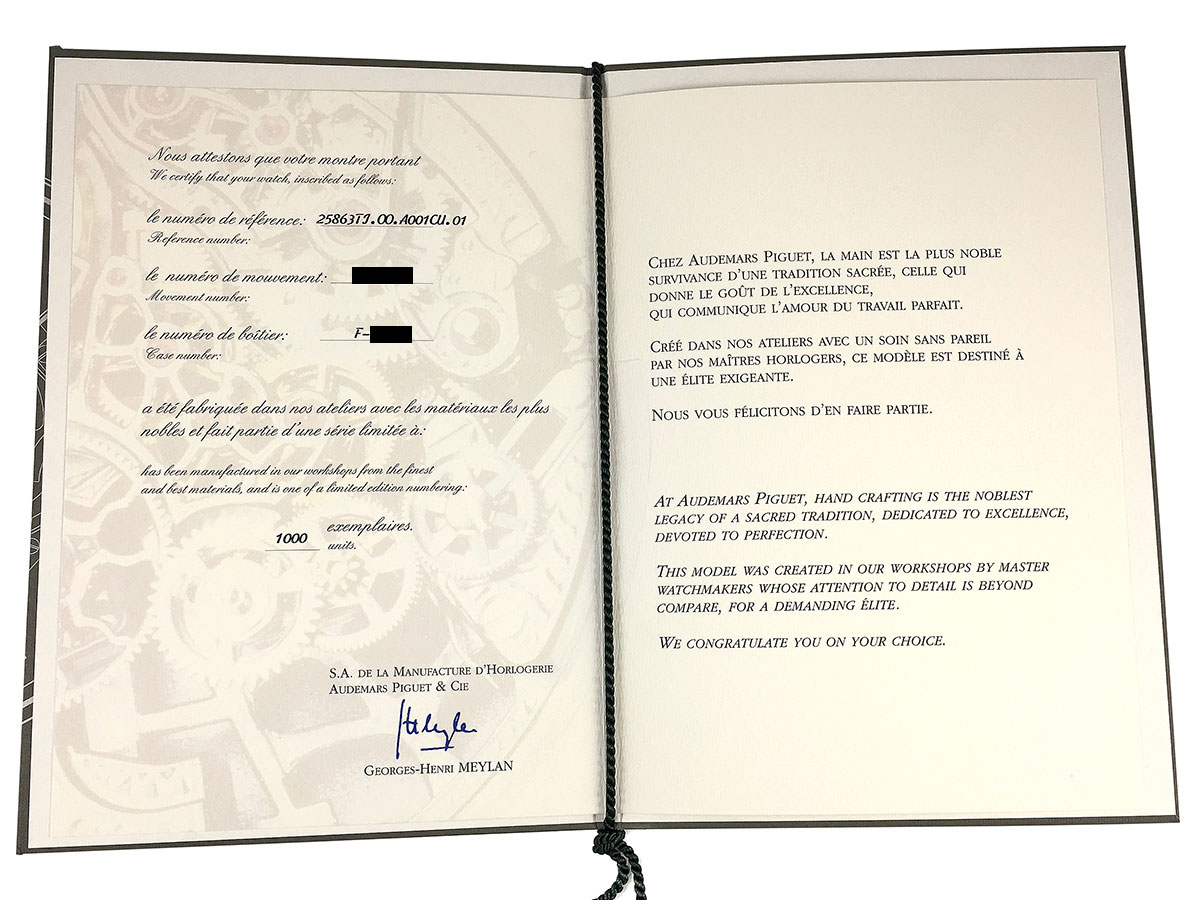 Nous attestons que votre montre portant
We certify that your watch, inscribed as follows:
le numéro de référence: 25863TI.OO.A001CU.01
Reference number:
le numéro de mouvement:
Movement number:
le numéro de boîtier: F-
Case number:
a été fabriquée dans nos ateliers avec les matériaux les plus
nobles et fait partie d'une série limitée à:
has been manufactured in our workshops from the finest
and best materials, and is one of a limited edition numbering:
1000 exemplaires.
units.
S.A. DE LA MANUFACTURE D'HORLOGERIE
AUDEMARS PIGUET & CIE
GEORGES-HENRI MEYLAN
CHEZ AUDEMARS PIGUET, LA MAIN EST LA PLUS NOBLE
SURVIVANCE D'UNE TRADITION SACRÉE, CELLE QUI
DONNE LE GOÛT DE L'EXCELLENCE,
QUI COMMUNIQUE L'AMOUR DU TRAVAIL PARFAIT.
CRÉÉ DANS NOS ATELIERS AVEC UN SOIN SANS PAREIL
PAR NOS MAÎTRES HORLOGERS, CE MODÈLE EST DESTINÉ À
UNE ÉLITE EXIGEANTE.
NOUS VOUS FÉLICITONS D'EN FAIRE PARTIE.
AT AUDEMARS PIGUET, HAND CRAFTING IS THE NOBLEST
LEGACY OF A SACRED TRADITION, DEDICATED TO EXCELLENCE,
DEVOTED TO PERFECTION.
THIS MODEL WAS CREATED IN OUR WORKSHOPS BY MASTER
WATCHMAKERS WHOSE ATTENTION TO DETAIL IS BEYOND
COMPARE, FOR A DEMANDING ÉLITE.
WE CONGRATULATE YOU ON YOUR CHOICE.